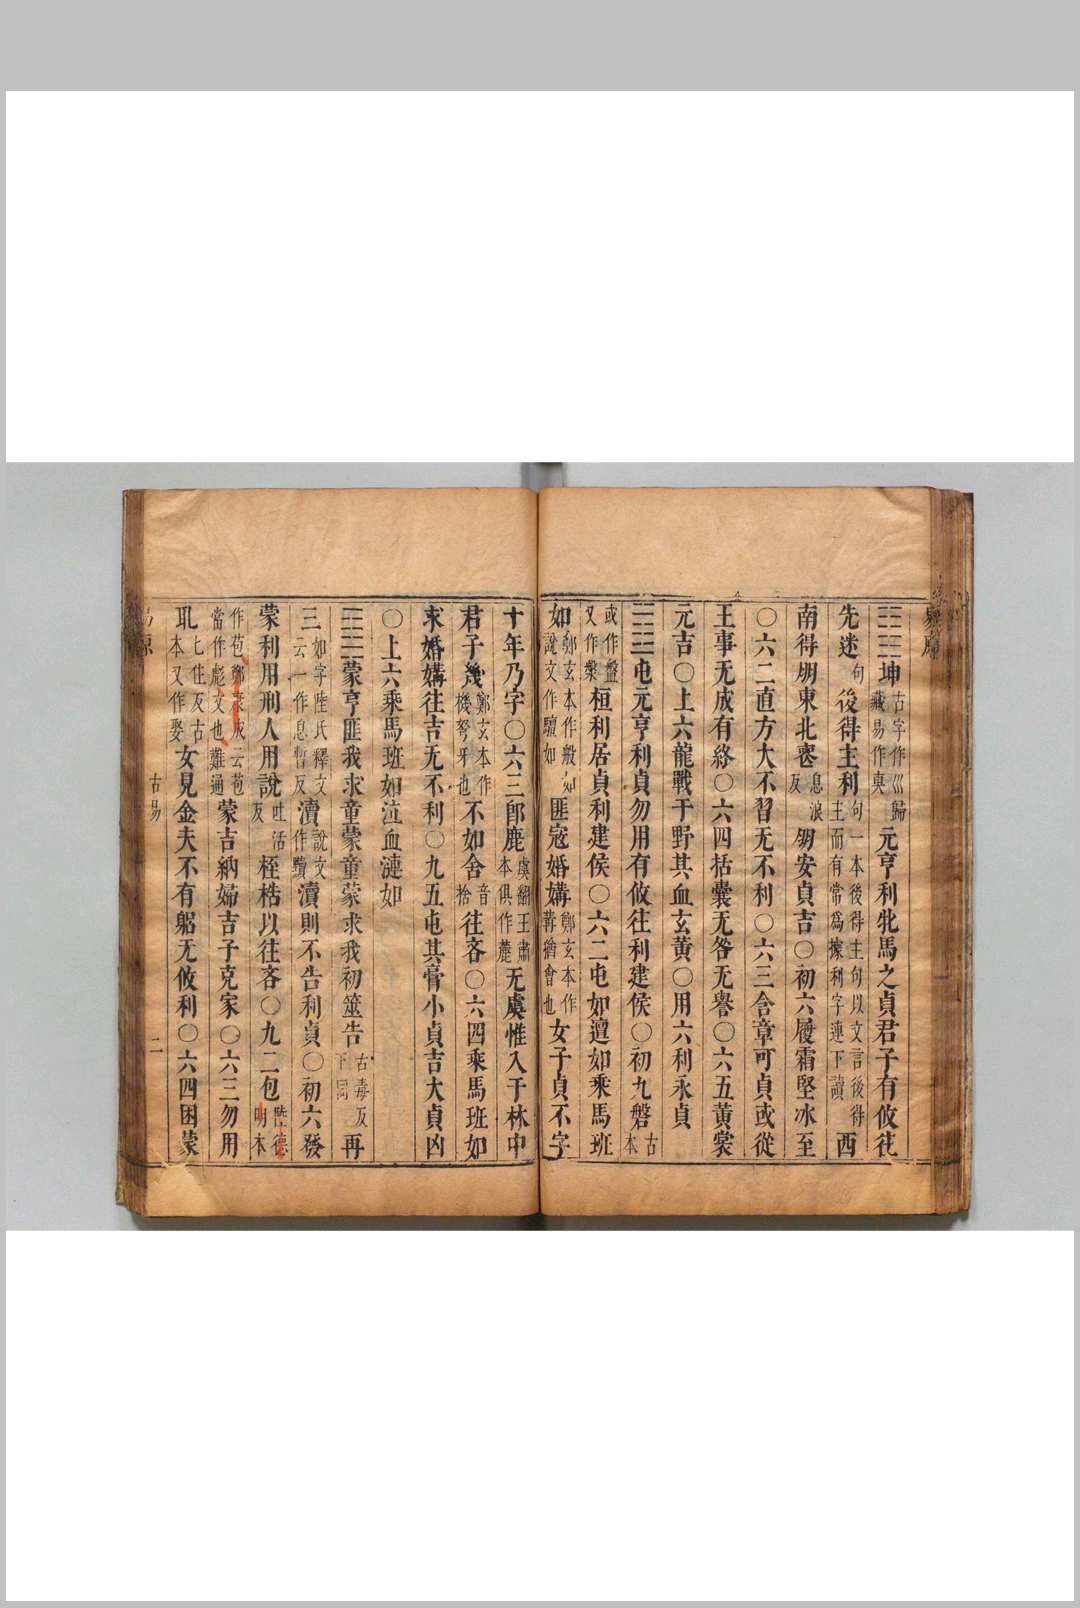 ䷁坤古字作巛歸藏易作𡘿元亨利牝馬之貞君子有攸往
先迷句後得主利句一本後得主句以文言後得主而有常爲據利字連下讀西
南得朋東北喪息浪反朋安貞吉○初六履霜堅冰至
○六二直方大不習无不利○六三含章可貞或從
王事无成有終○六四括囊无咎无譽○六五黃裳
元吉○上六龍戰于野其血玄黃○用六利永貞
䷂屯元亨利貞勿用有攸往利建侯○初九磐古本
或作盤又作槃桓利居貞利建侯○六二屯如邅如乘馬班
如鄭玄本作般如說文作驙如匪寇婚媾鄭玄本作冓猶會也女子貞不字
十年乃字○六三卽鹿虞翻王肅本俱作麓无虞惟入于林中
君子幾鄭玄本作機弩牙也不如舍音捨往吝○六四乘馬班如
求婚媾往吉无不利○九五屯其膏小貞吉大貞凶
○上六乘馬班如泣血漣如
䷃蒙亨匪我求童蒙童蒙求我初筮告古毒反下同再
三如字陸氏釋文云一作息暫反瀆說文作黷瀆則不告利貞○初六發
蒙利用刑人用說吐活反桎梏以往吝○九二包陸德明本
作苞鄭玄成云苞當作彪文也難通蒙吉納婦吉子克家○六三勿用
取七住反古本又作娶女見金夫不有躬无攸利○六四困蒙
古易
二